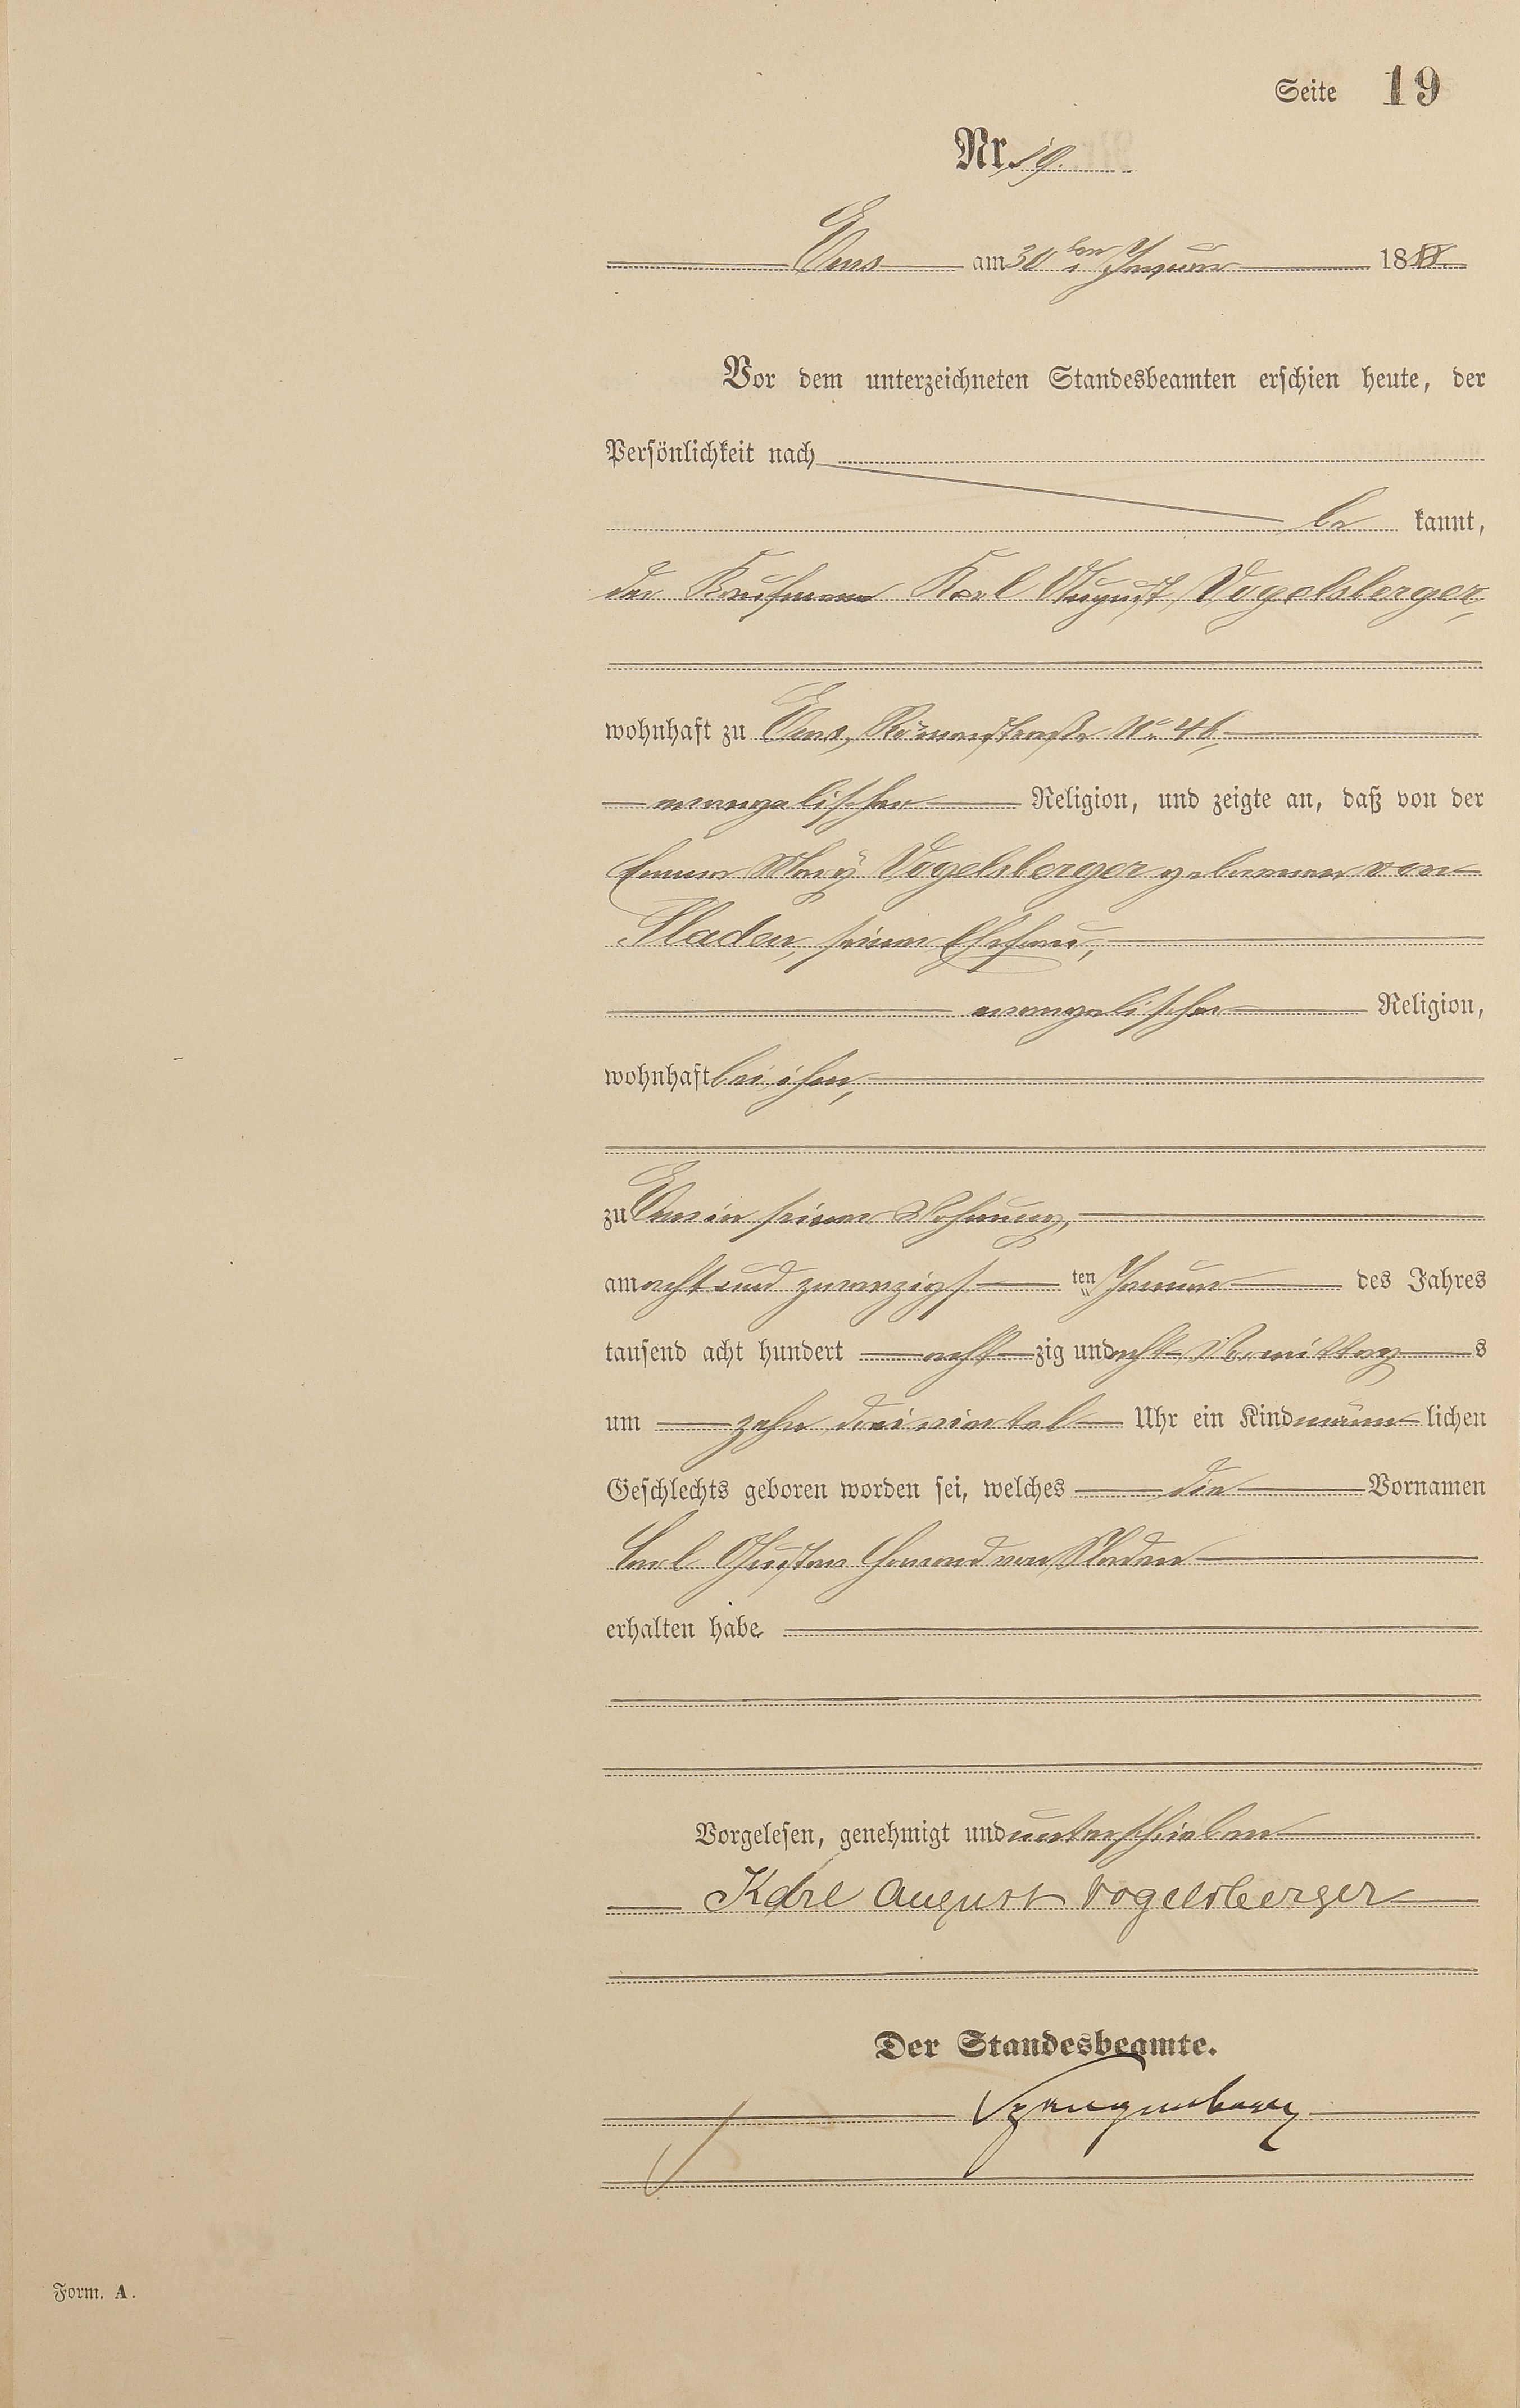 Seite 19
Nr. 19.
Ems am 30ten Januar 1888.
Vor dem unterzeichneten Standesbeamten erschien heute, der
Persönlichkeit nach
be kannt,
der Kaufmann Karl August Vogelsberger,
wohnhaft zu Ems, Römerstraße No 46,
evangelischer Religion, und zeigte an, daß von der
Emma Mary Vogelsberger geborenen von
Sladen, seiner Ehefrau,
evangelischer Religion,
wohnhaft bei ihm,
zu Ems in seiner Wohnung,
am acht und zwanzigs ten Januar des Jahres
tausend acht hundert acht zig und acht Vormittag s
um zehn dreiviertel Uhr ein Kind männ lichen
Geschlechts geboren worden sei, welches die Vornamen
Carl Gustav von Sladen
erhalten habe
Vorgelesen, genehmigt und unterschrieben
Karl August Vogelsberger
Der Standesbeamte.
Spangenberg
Form. A.